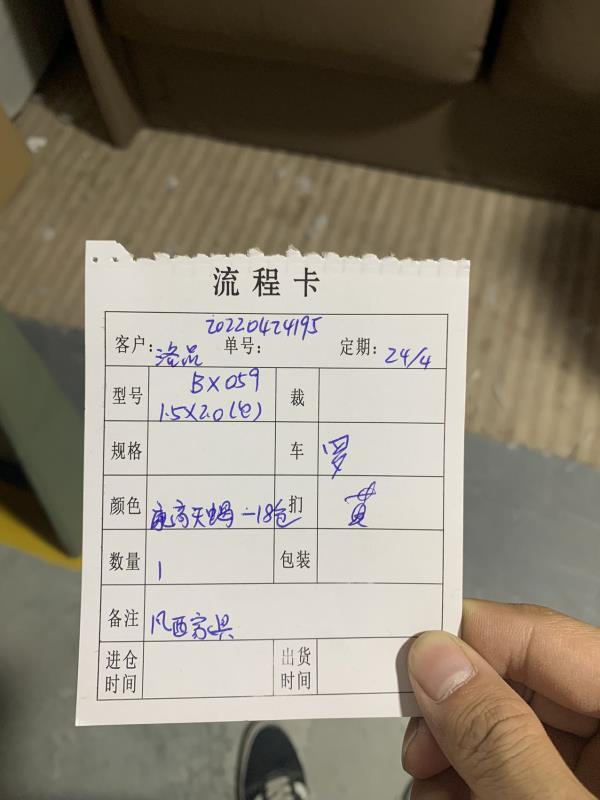 流程卡
20220424195
客户：洛品 单号： 定期：24/4
型号 BX059 裁
1.5X2.0(包)
规格 车 罗
颜色 康高天蝎-18色 扪 黄
数量 1 包装
备注 凡西家具
进仓时间 出货时间